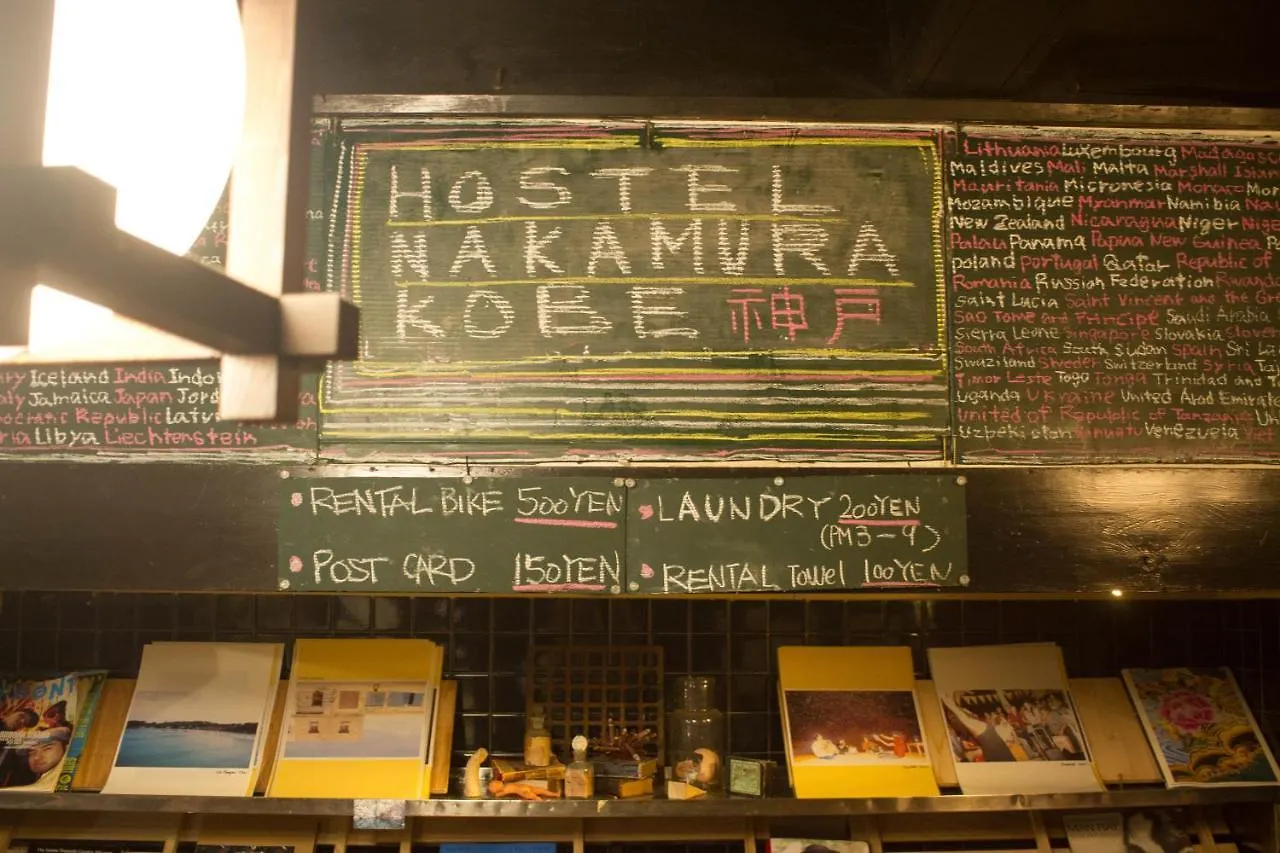 HOSTEL
NAKAMURA
KOBE 神戸
Iceland India
Jamaica Japan
Republic
Libya Liechtenstein
Lithuania Luxembourg
Maldives Mali Malta Marshall
Mauritania Micronesia Monaco
Mozambique Myanmar Namibia
New Zealand Nicaragua Niger
Palau Panama Papua New Guinea
Poland Portugal Qatar Republic of
Romania Russian Federation Rwanda
Saint Lucia Saint Vincent and the
Sao Tome and Principe Saudi Arabia
Sierra Leone Singapore Slovakia
South Africa South Sudan Spain Sri
Swaziland Switzerland Syria
Timor Leste Togo Tonga Trinidad and
Uganda Ukraine United Arab
United of Republic of Tanzania
Vanuatu Venezuela
RENTAL BIKE 500YEN
POST CARD 150YEN
LAUNDRY 200YEN
(PM3-9)
RENTAL Towel 100YEN